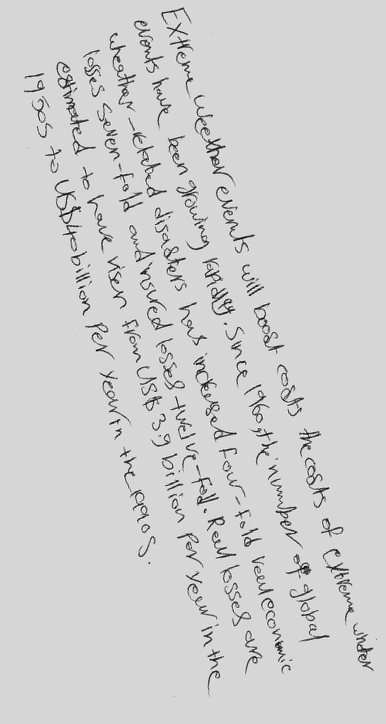 Extreme wheether events will boost costs the costs of extreme winder
events have been growing rapidly. Since 1960, the number of global
wheather-related disasters has increased four-fold real economic
losses seven-fold and insured losses twelve-fold. Real losses are
estimated to have risen from US$ 3.9 billion per year in the
1950s to US$40billion per year in the 1990s.